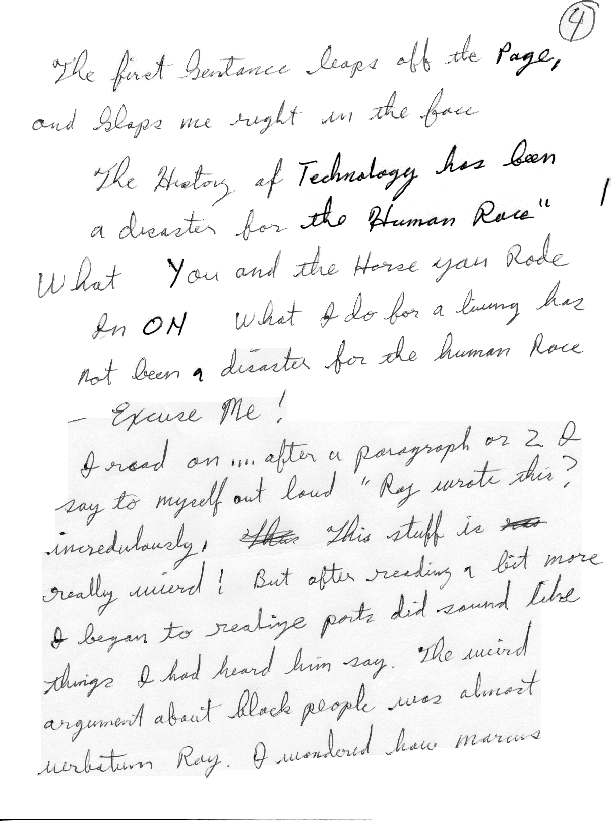 4
The first Sentance leaps off the Page,
and Slaps me right in the face
The History of Technology has been
a disaster for the Human Race"
What You and the Horse you Rode
In ON What I do for a living has
not been a disaster for the human Race
— Excuse Me!
I read on .... after a paragraph or 2 I
say to myself out loud "Ray wrote this?
incredulously, This stuff is
really wierd! But after reading a bit more
I began to realize parts did sound like
things I had heard him say. The weird
argument about black people was almost
verbatum Ray. I wondered how marcus